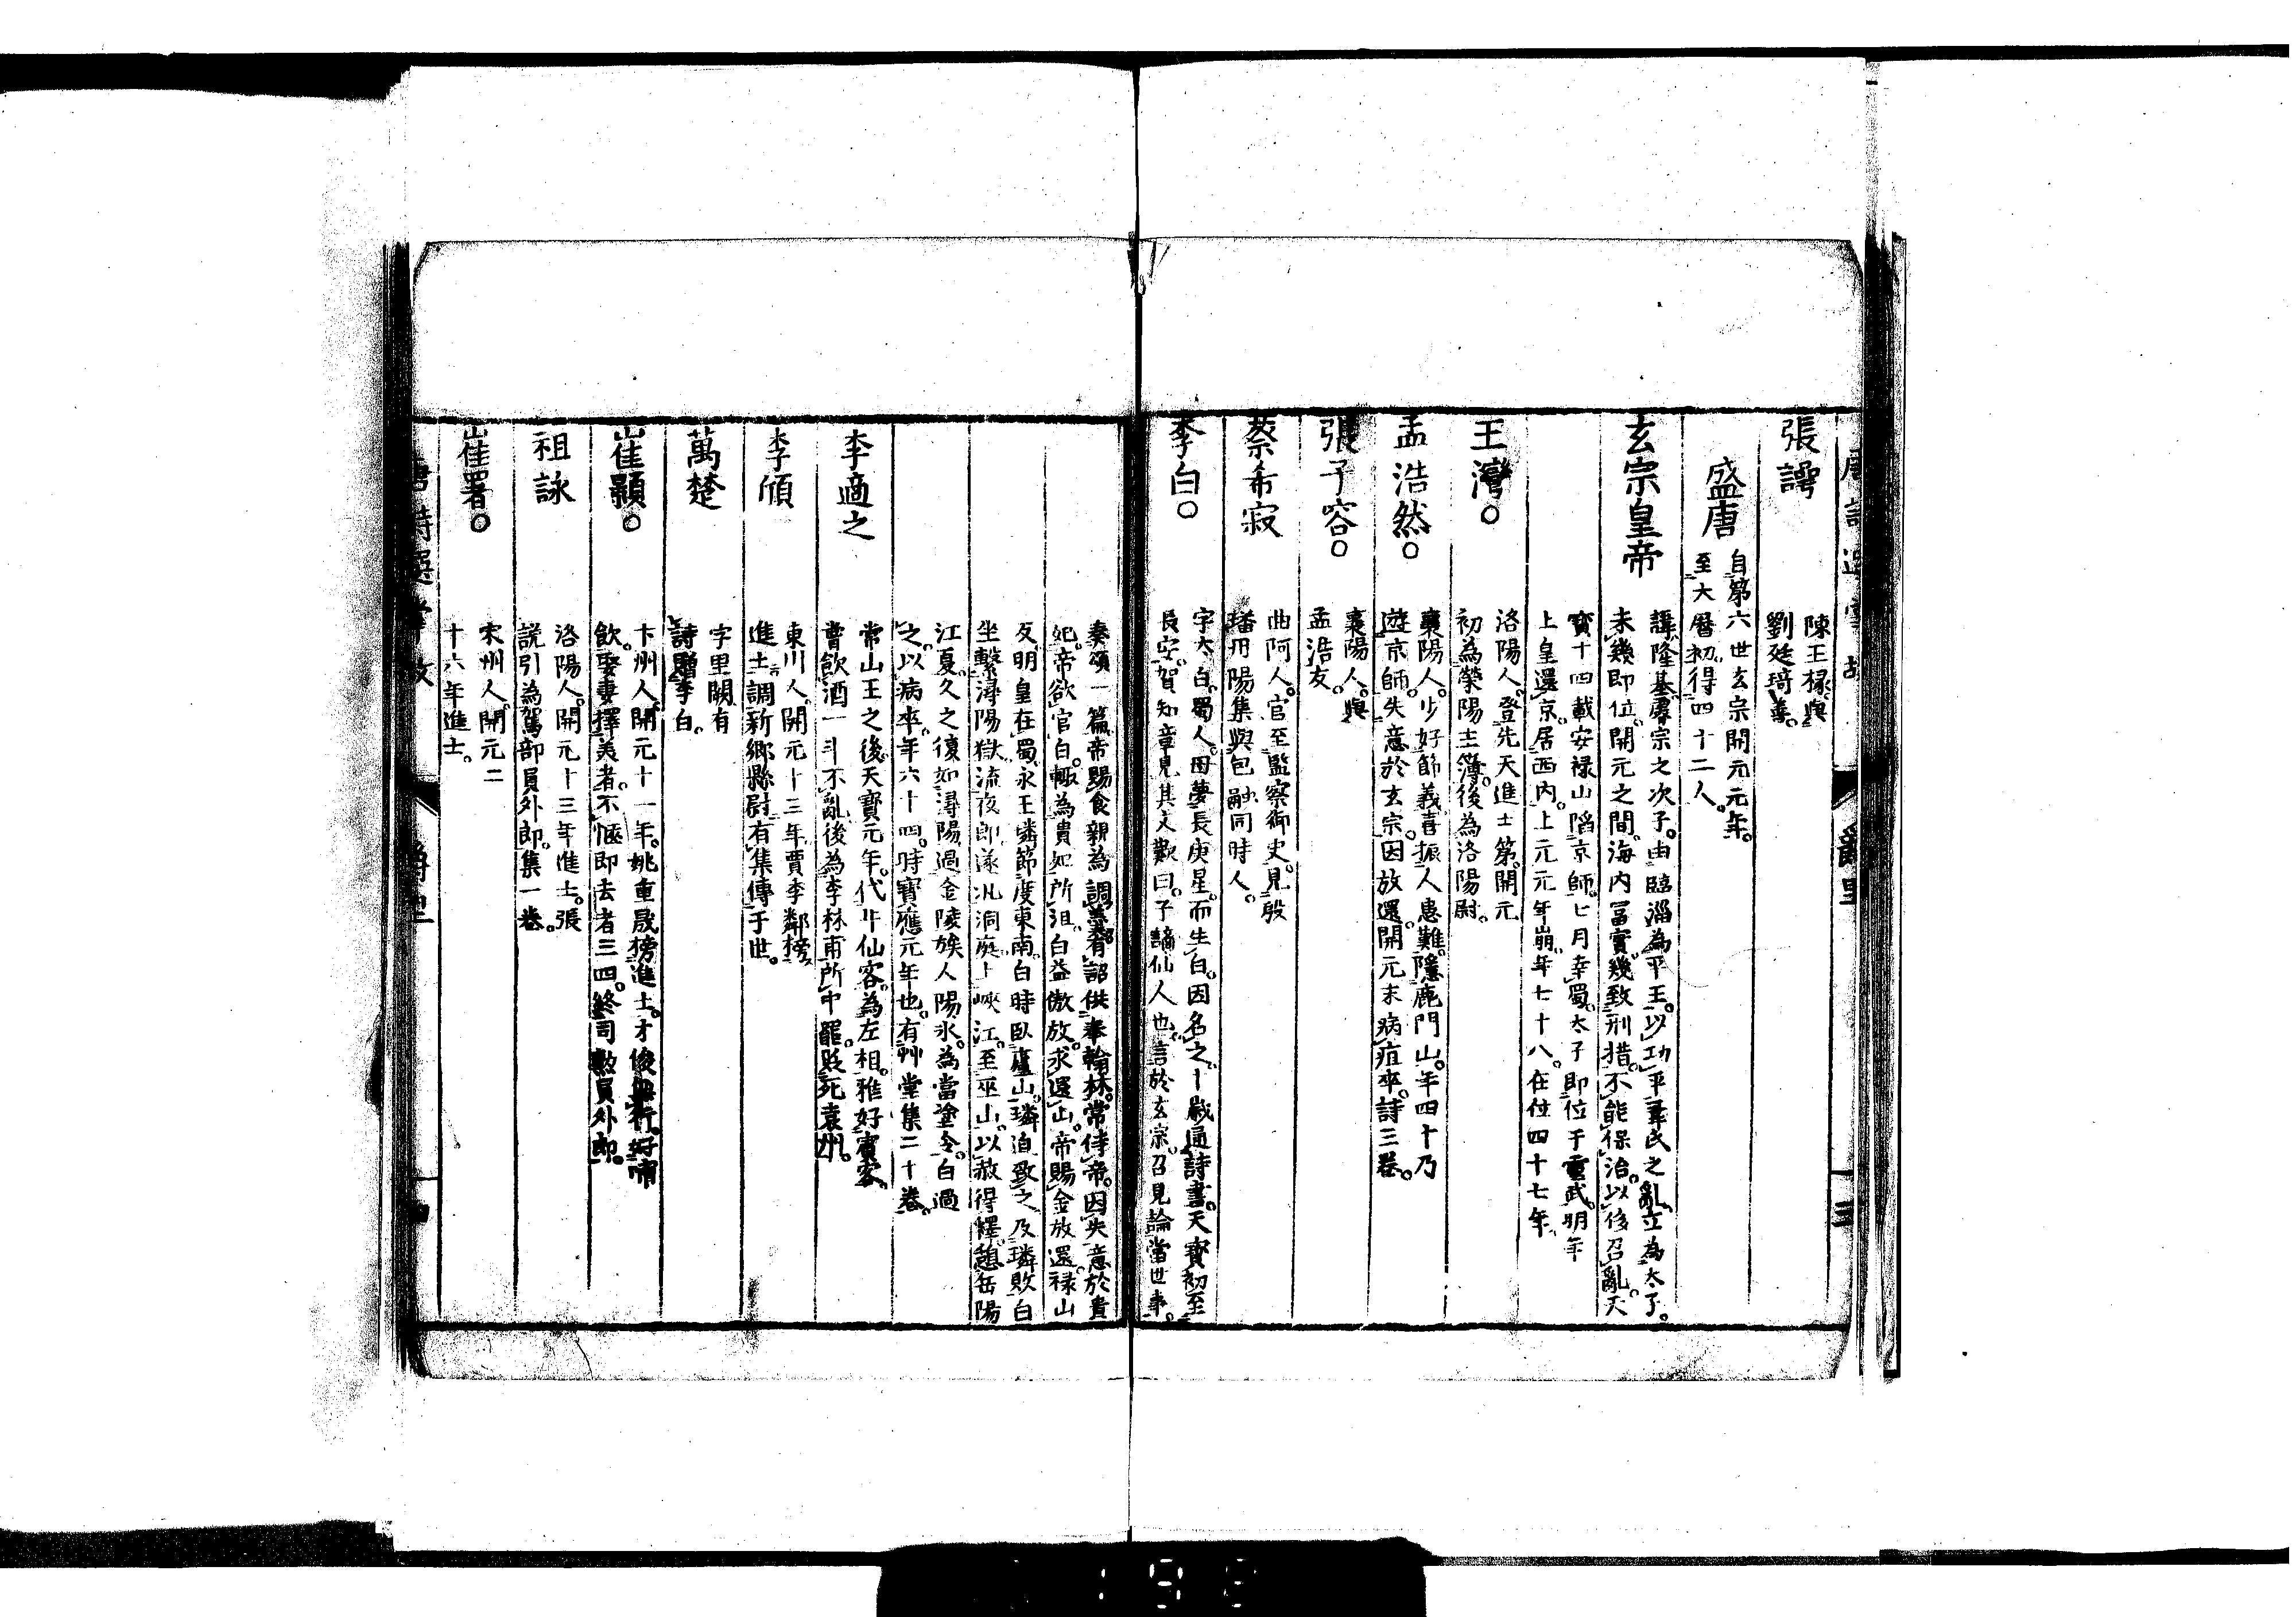 張諤
陳王掾。與
劉廷琦善。
盛唐
自第六世玄宗開元元年。
至大曆初。得四十二人。
玄宗皇帝
諱隆基。睿宗之次子。由臨淄為平王。以功平韋氏之亂。立為太子。
未幾即位。開元之間。海内冨實。幾致刑措。不能保治。以後召亂。天
寳十四載安禄山陷京師。七月幸蜀。太子即位于靈武。明年
上皇還京。居西内。上元元年崩。年七十八。在位四十七年。
王灣。
洛陽人。登先天進士第。開元
初為榮陽主簿。後為洛陽尉。
孟浩然。
襄陽人。少好節義。喜振人患難。隱鹿門山。年四十乃
遊京師。失意於玄宗。因放還。開元末病疽卒。詩三卷。
張子容。
襄陽人。與
孟浩友。
蔡希寂
曲阿人。官至監察御史。見殷
璠丹陽集與包融同時人。
李白。
字太白。蜀人。母夢長庚星。而生白。因名之。十歲通詩書。天寳初至
長安。賀知章見其文歎曰。子謫仙人也。言於玄宗。召見論當世事。
奏頌一篇。帝賜食親為調羹。有詔供奉翰林。常侍帝。因失意於貴
妃。帝欲官白。輙為貴妃所沮。白益傲放。求還山。帝賜金放還。禄山
反。明皇在蜀。永王璘節度東南。白時臥廬山。璘迫致之。及璘敗白
坐繫潯陽獄。流夜郎。遂汎洞庭。上峽江。至巫山。以赦得釋。憩岳陽
江夏。久之復如潯陽。過金陵。族人陽冰。為當塗令。白過
之。以病卒。年六十四。時寳應元年也。有艸堂集二十卷。
李適之
常山王之後。天寳元年。代牛仙客。為左相。雅好賓客。
嘗飲酒一斗不亂。後為李林甫所中罷。貶死袁州。
李頎
東川人。開元十三年。賈季鄰榜
進士。調新鄉縣尉。有集傳于世。
萬楚
字里闕。有
詩贈李白。
崔顥。
卞州人。開元十一年。姚重晟榜進士。才俊無行。好嗜
飲。娶妻擇美者。不愜即去者三四。終司勲員外郎。
祖詠
洛陽人。開元十三年進士。張
説引為駕部員外郎。集一卷。
崔署。
宋州人。開元二
十六年進士。